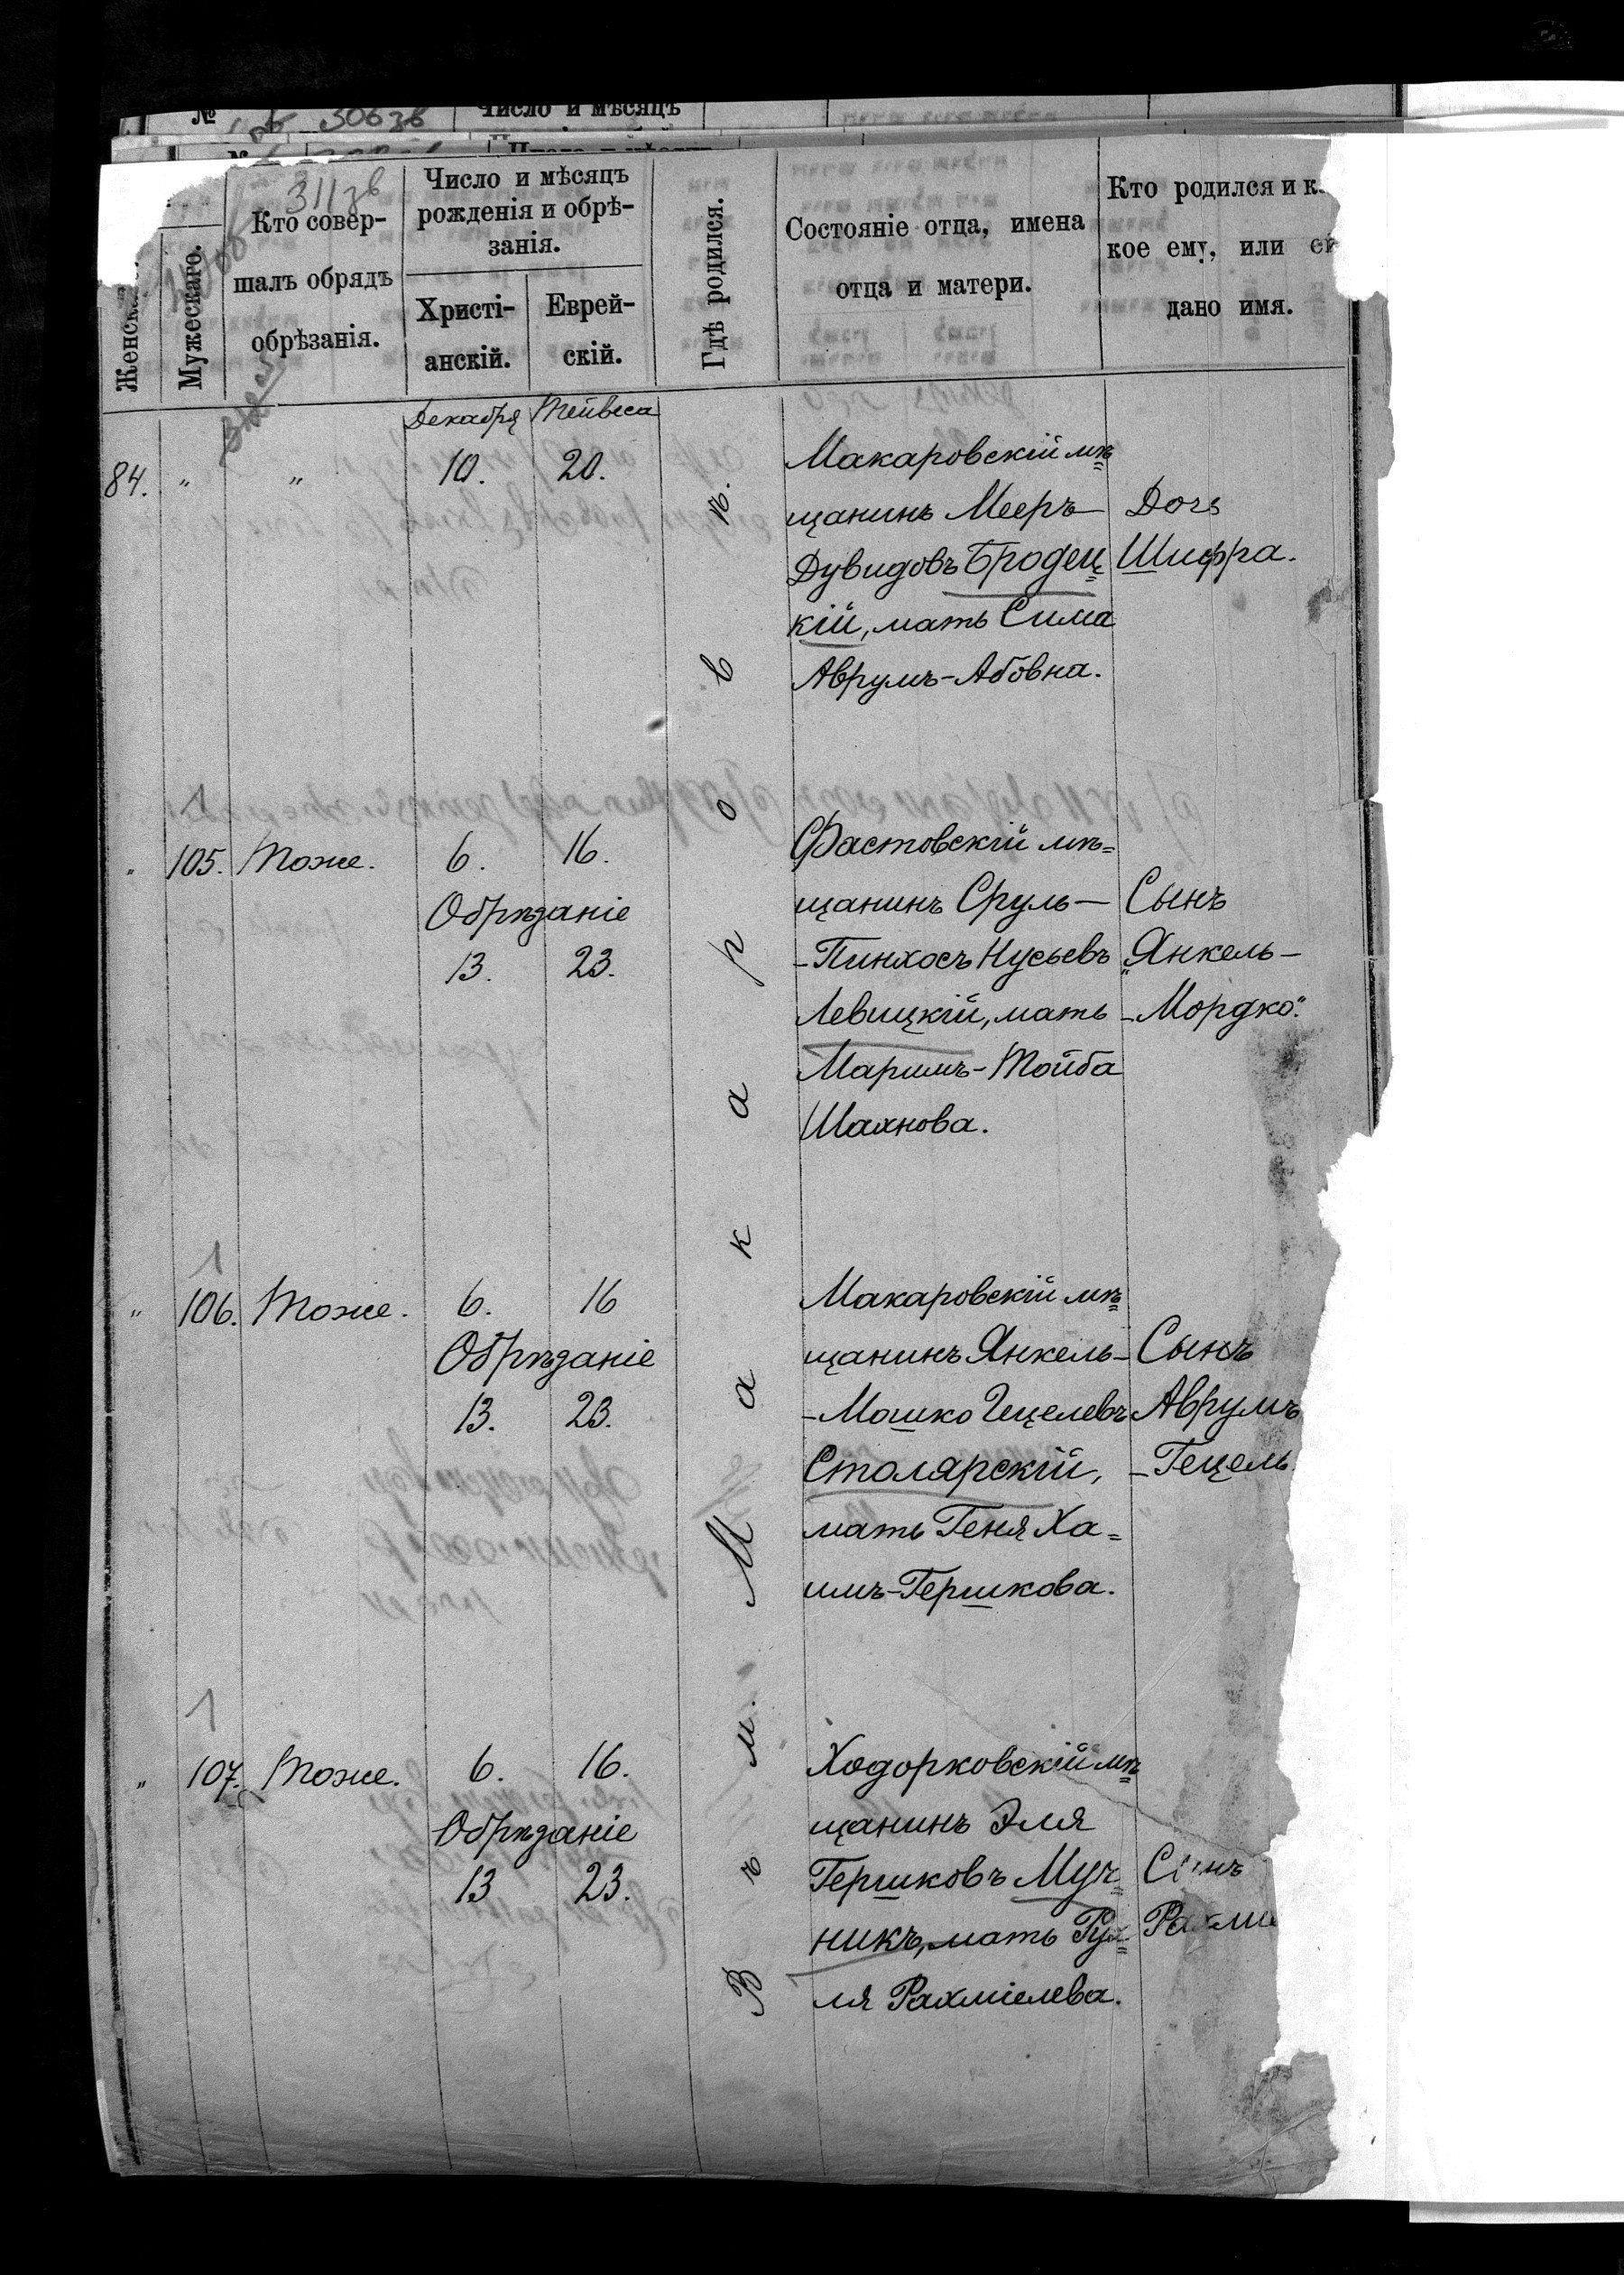 № 306зв Число и мѣсяцъ
311зв
Женска
Мужескаго.
Кто совер-
шалъ обрядъ
обрѣзанія.
Число и мѣсяцъ
рожденія и обрѣ-
занія.
Христі-
анскій.
Еврей-
скій.
Гдѣ родился.
Состояніе отца, имена
отца и матери.
Кто родился и к
кое ему, или ей
дано имя.
Декабря Тейвеса
84. " " 10. 20.
Макаровскій мѣ=
щанинъ Мееръ
Дувидовъ Бродец=
кій, мать Сима
Аврумъ-Абовна.
Дочь
Шифра.
1
" 105. Тоже. 6. 16.
Обрѣзаніе
13. 23.
Фастовскій мѣ=
щанинъ Сруль-
-Пинхосъ Нусьевъ
Левицкій, мать
Маримъ-Тойба
Шахнова.
Сынъ
"Янкель-
-Мордко".
1
" 106. Тоже. 6. 16
Обрѣзаніе
13. 23.
Макаровскій мѣ=
щанинъ Янкель-
-Мошко Гецелевъ
Столярскій,
мать Геня Ха=
имъ-Гершкова.
Сынъ
Аврумъ
-Гецель
1
" 107. Тоже. 6. 16.
Обрѣзаніе
13 23.
Ходорковскій мѣ=
щанинъ Эля
Гершковъ Муч=
никъ, мать Рух=
ля Рахміелева.
Сынъ
Рахми
Въ м. Макаровѣ.